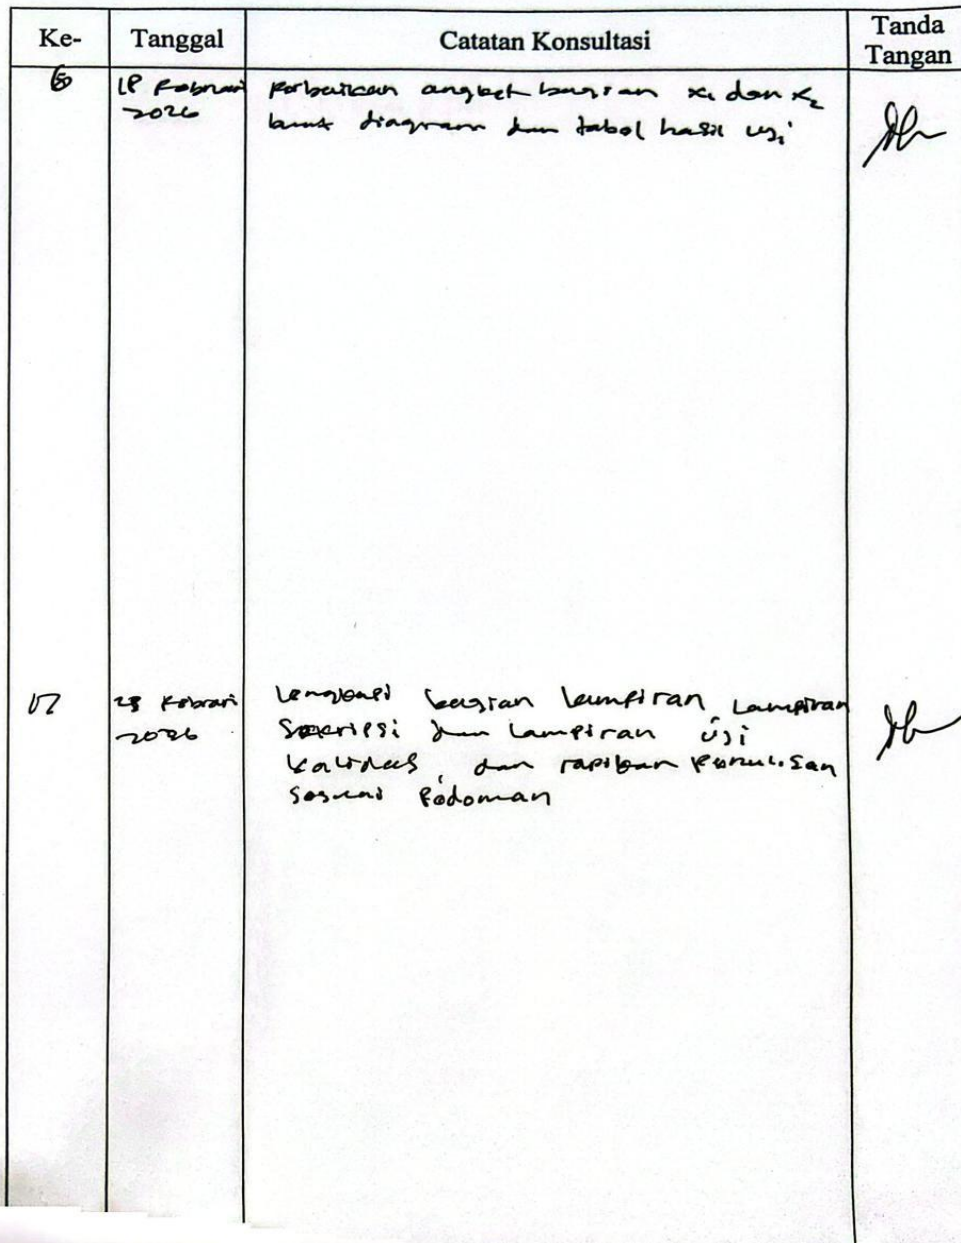 Ke- Tanggal Catatan Konsultasi Tanda Tangan
18 Februari perbaikan angket bagian x1 dan x2
2026 buat diagram dan tabel hasil uji
07 23 Februari Lengkapi bagian lampiran, Lampiran
2026 Skripsi dan Lampiran Uji
Validitas, dan rapikan penulisan
Sesuai Pedoman